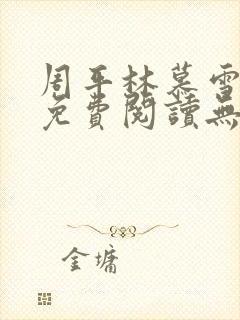 周平林慕雪
免費閱讀無
金墉